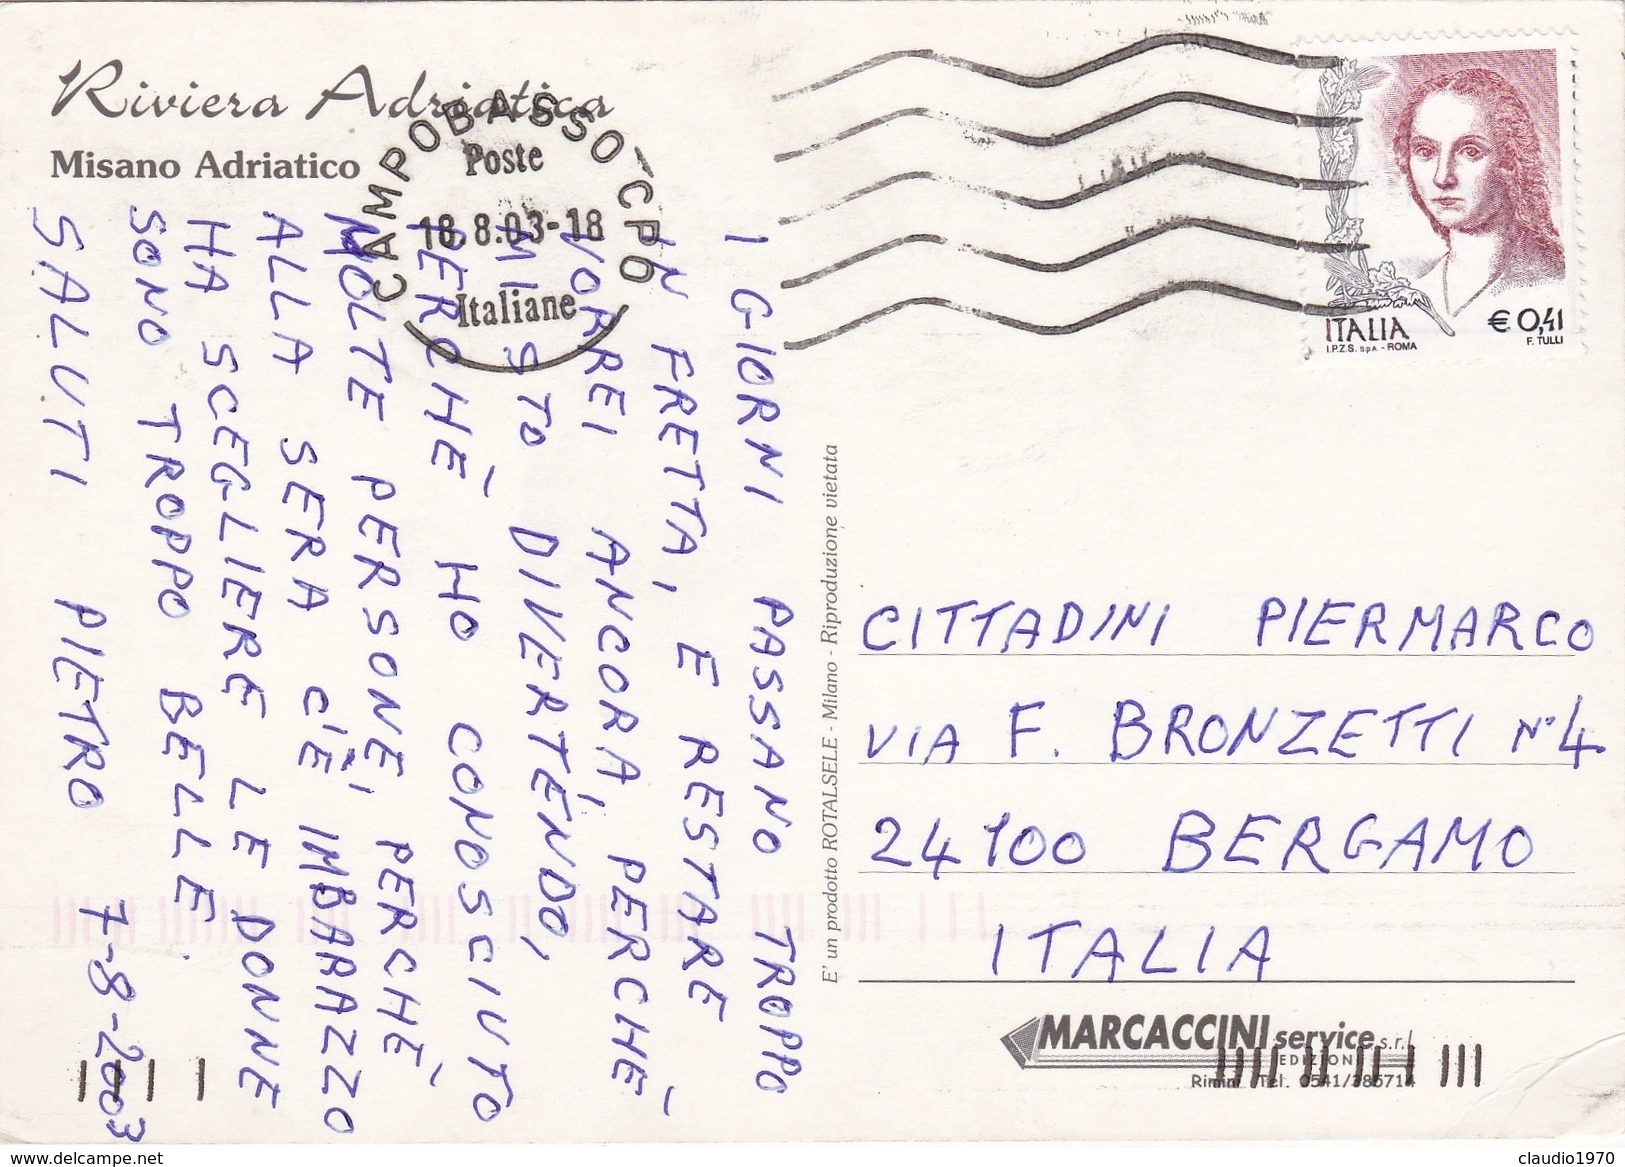 Riviera Adriatica
Misano Adriatico
CAMPOBASSO CPO
Poste
18.8.03-18
Italiane
ITALIA
€ 0,41
I.P.Z.S. S.p.A. - ROMA
F. TULLI
I GIORNI PASSANO TROPPO
IN FRETTA, E RESTARE
VORREI ANCORA, PERCHÈ
MI STO DIVERTENDO,
PERCHÈ HO CONOSCIUTO
MOLTE PERSONE, PERCHÈ
ALLA SERA C'È IMBARAZZO
HA SCEGLIERE LE DONNE
SONO TROPPO BELLE.
SALUTI PIETRO 7-8-2003
E' un prodotto ROTALSELE - Milano - Riproduzione vietata
CITTADINI PIERMARCO
VIA F. BRONZETTI N°4
24100 BERGAMO
ITALIA
MARCACCINI service s.r.l
EDIZIONI
Rimini Tel. 0541/385714
delcampe.net
claudio1970